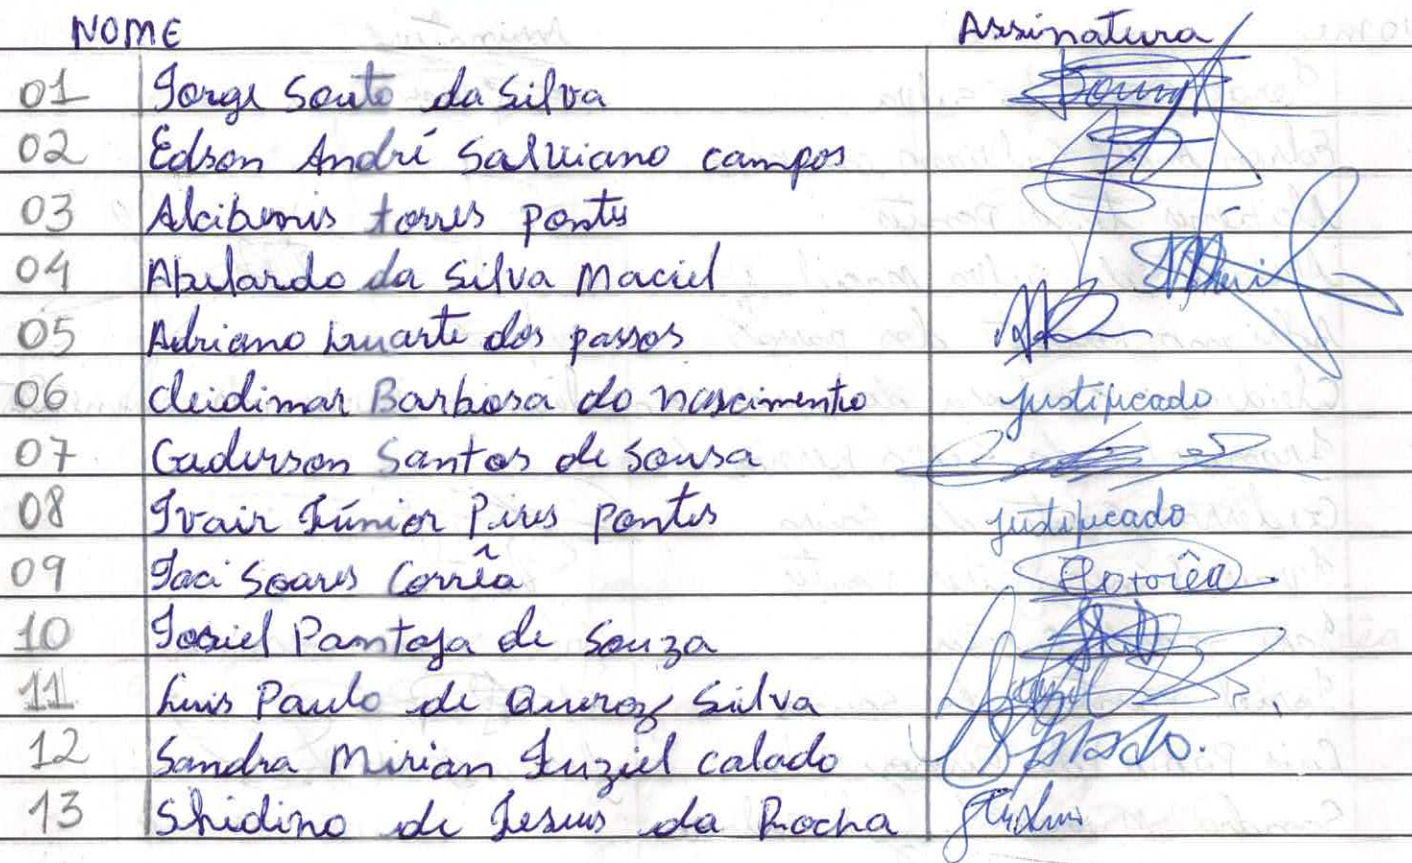 NOME Assinatura
01 Jorge Souto da Silva
02 Edson André Salviano campos
03 Alcibenis torres pontes
04 Abelardo da Silva Maciel
05 Adriano Duarte dos passos
06 Cleidimar Barbosa do nascimento justificado
07 Gaderson Santos de Sousa
08 Ivair Júnior Pires pontes justificado
09 Jaci Soares Corrêa Corrêa
10 Josiel Pantoja de Souza
11 Luis Paulo de Queroz Silva
12 Sandra Mirian calado
13 Shidino de Jesus da Rocha